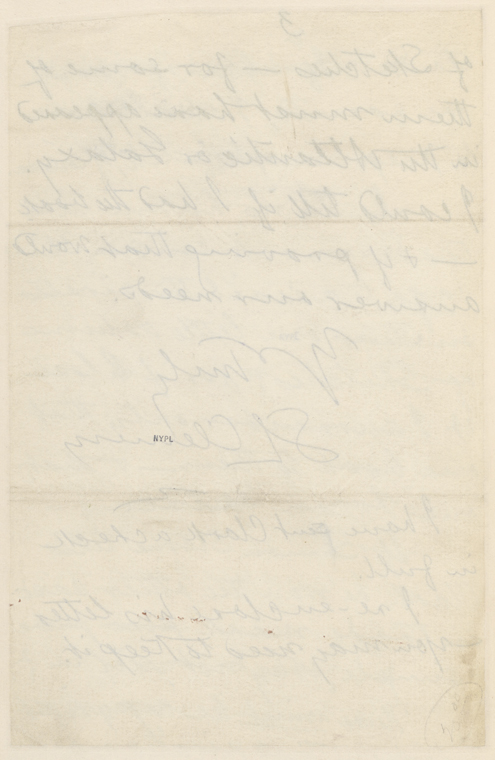 3
of Sketches — for some of
them must have appeared
in the Atlantic or Galaxy.
I could tell if I had the book
— & if proving that would
answer our needs.
Yrs Truly
SL Clemens
NYPL
I have sent Clark a check
in full.
I re-enclose his letter
— you may need to keep it.